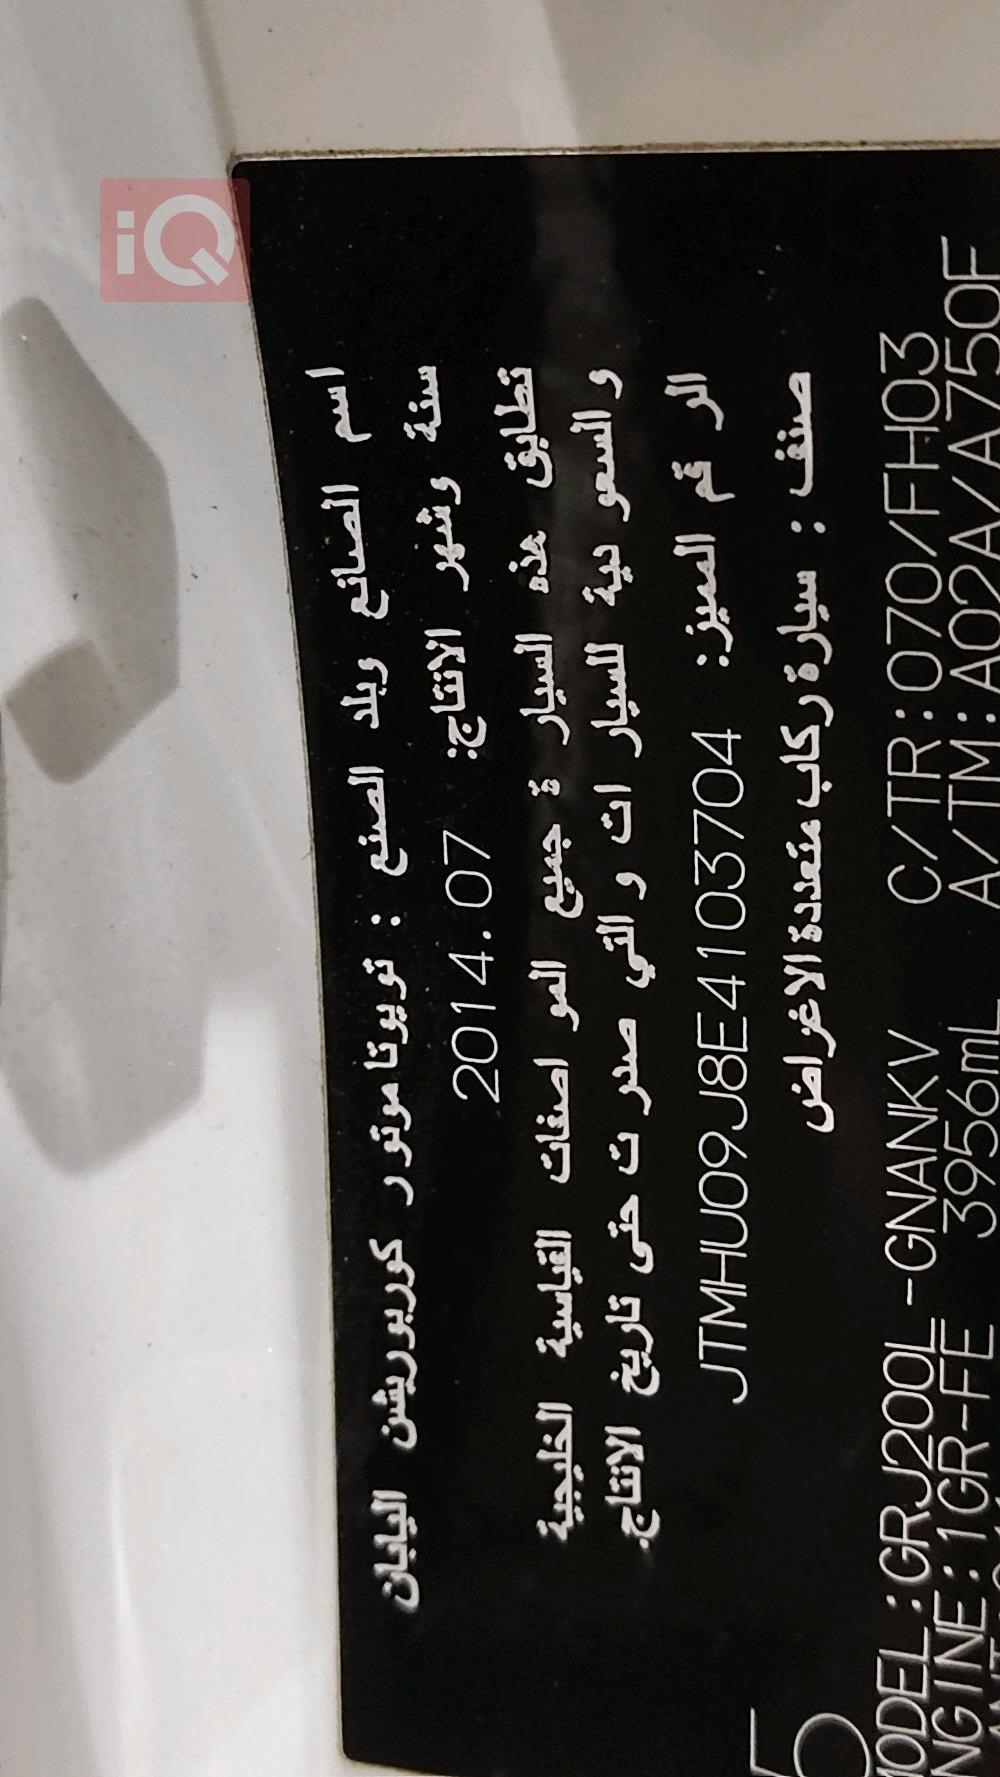 iQ
اسم الصانع وبلد الصنع : تويوتا موتور كوربوريشن اليابان
سنة وشهر الانتاج: 2014.07
تطابق هذه السيارة جميع المواصفات القياسية الخليجية
والسعودية للسيارات والتي صدرت حتى تاريخ الانتاج.
الرقم المميز: JTMHU09J8E4103704
صنف : سيارة ركاب متعددة الاغراض
5
MODEL:GRJ200L-GNANKV C/TR:070/FH03
ENGINE:1GR-FE 3956mL A/TM:A02A/A750F